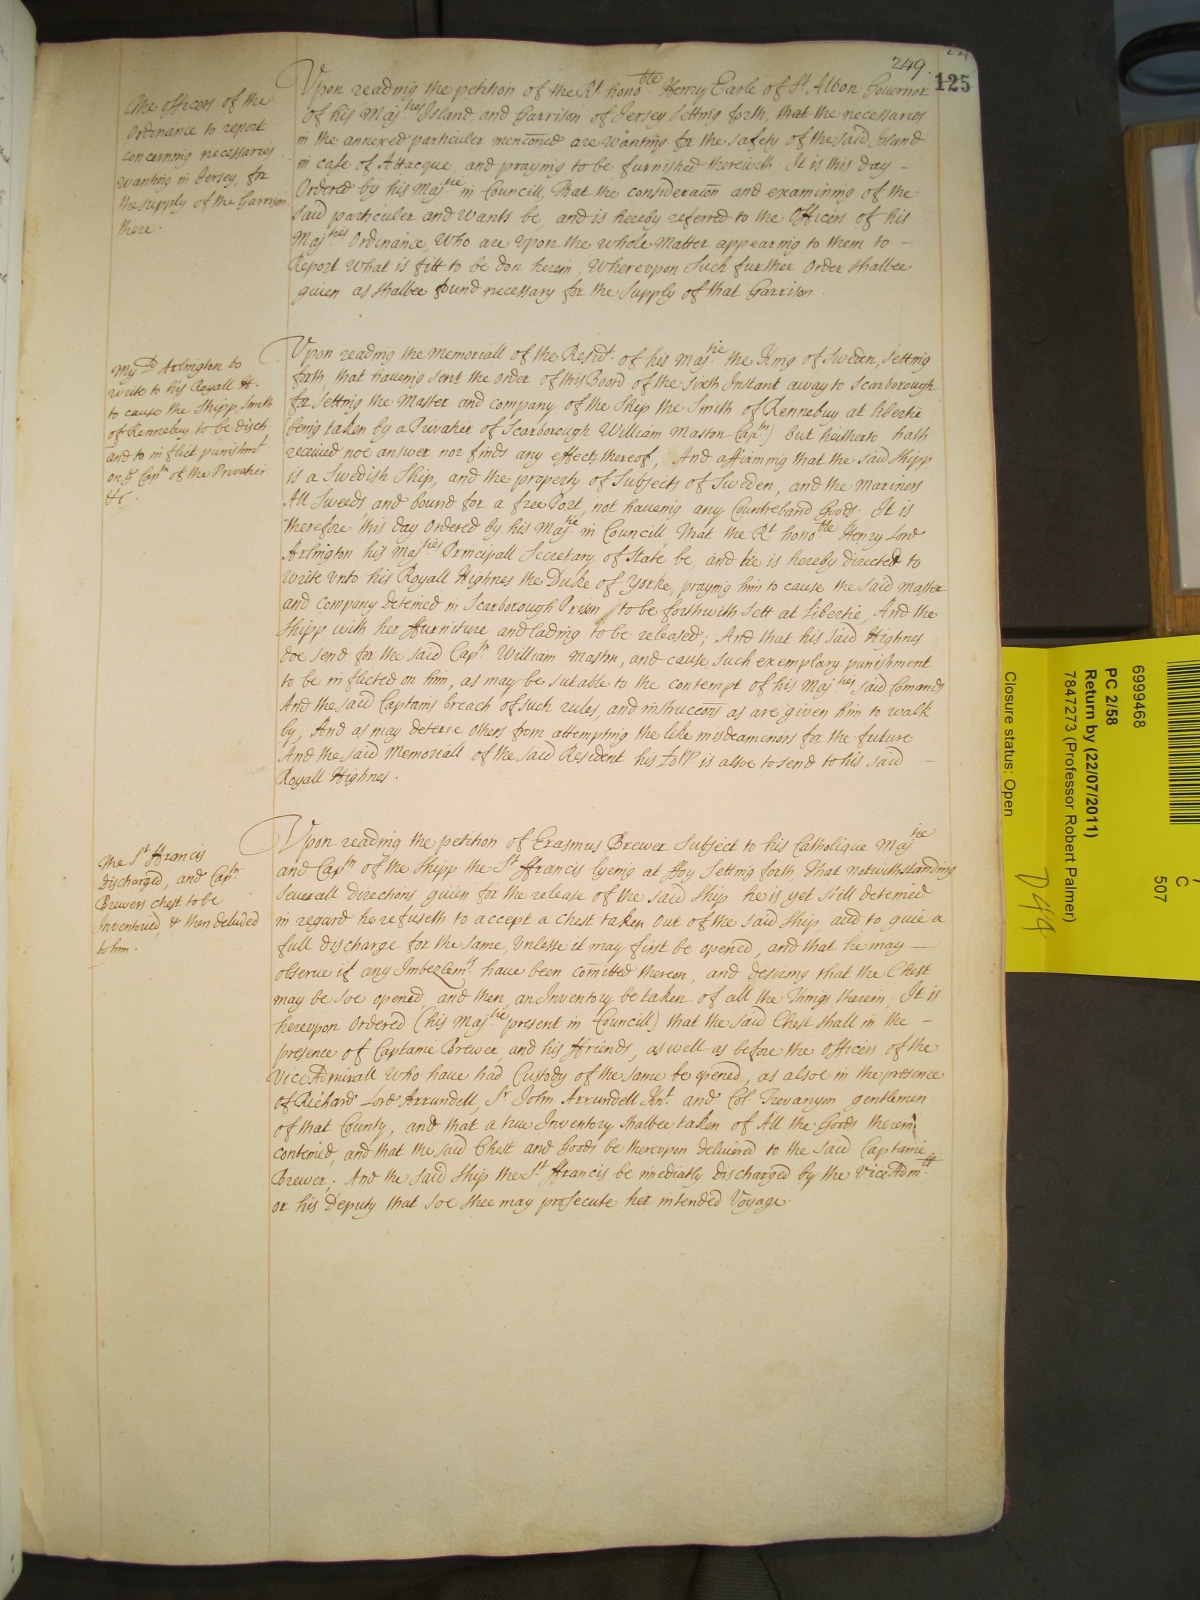 249.
125
The officers of the
Ordinance to report
concerning necessaries
wanting in Jersey, for
the supply of the Garrison
there.
Upon reading the petition of the Rt. honoble Henry Earle of St Albon Governor
of his Majties Island, and Garrison of Jersey, Setting forth, that the necessaries
in the annexed particuler menc̄oned are wanting for the safety of the said Island
in case of Attacque, and praying to be furnished therewith, It is this day –
Ordered by his Majtie in Councill, That the considerac̄on and examining of the
said particuler and wants be, and is hereby referred to the Officers of his
Majties Ordinance, Who are upon the whole Matter appearing to them to –
Report What is fitt to be don herein, Whereupon Such further Order shalbee
given as shalbee found necessary for the Supply of that Garrison.
My Ld Arlington to
write to his Royall H.
to cause the Shipp Smith
of Rennebuy to be disch
and to inflict punishmt
on ye Capn of the Privateer
&c.
Upon reading the Memoriall of the Residt. of his Majtie the King of Sweden, setting
forth, that haveing sent the order of this Board of the sixth Instant away to Scarborough
for Setting the Master and company of the Ship the Smith of Rennebuy at libertie
being taken by a Privateer of Scarborough William Maston Capn) but heitherto hath
received noe answer nor finds any effect thereof, And affirming that the said Shipp
is a Swedish Ship, and the property of Subjects of Sweden, and the Mariners
All Sweeds and bound for a free Port, not haveing any Countreband Goods: It is
therefore this day Ordered by his Majtie in Councill, That the Rt honoble Henry Lord
Arlington his Majties Principall Secretary of State be, and he is hereby directed to
Write unto his Royall Highnes the Duke of Yorke, praying him to cause the said Master
and company deteined in Scarborough Prison to be forthwith Sett at libertie, And the
Shipp with her ffurniture and lading to be released; And that his said Highnes
doe send for the said Capn William Maston, and cause such exemplary punishment
to be inflicted on him, as may be sutable to the contempt of his Majties said Com̄ands
And the said Captains breach of such rules, and instrucc̄ons as are given him to walk
by, And as may deterre others from attempting the like misdeamenors for the future
And the said Memoriall of the said Resident his Lopp is alsoe to send to his said –
Royall Highnes.
The St ffrancis
discharged, and Capn
Brewers chest to be
Inventoried, & then delivred
to him.
Upon reading the petition of Erasmus Brewer Subject to his Catholique Majtie
and Capn of the Shipp the St ffrancis lyeing at ffoy Setting forth, That notwithstanding
severall Directions given for the release of the said Ship he is yet still deteined
in regard he refuseth to accept a Chest taken out of the said Ship, and to give a
full discharge for the same, unlesse it may first be opened, and that he may –
observe if any Imbezlemt. have been com̄itted thereon, and desiring that the Chest
may be soe opened, and then, an Inventory be taken of all the Things therein, It is
hereupon Ordered (his Majtie present in Councill) that the said Chest shall in the –
presence of Captaine Brewer, and his ffriends, as well as before the Officers of the
Vice Admirall who have had Custody of the same be opened, as alsoe in the presence
of Richard Lord Arrundell, Sr John Arrundell Knt. and Col Trevanyon gentlemen
of that County, and that a true Inventory shalbee taken of All the Goods therein
conteined, and that the said Chest and Goods be thereupon delivered to the said Captaine
Brewer; And the said Ship the St ffrancis be im̄ediatly discharged by the Vice Admll
or his Deputy that soe shee may prosecute her intended Voyage.
6999468
PC 2/58
Return by (22/07/2011)
7847273 (Professor Robert Palmer)
Closure status: Open
C
507